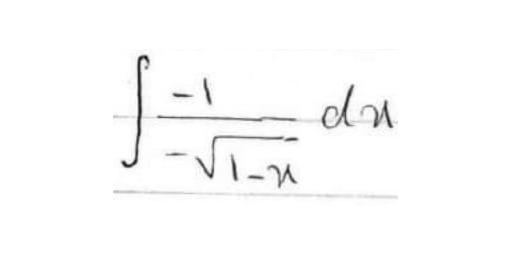 ∫ \frac{-1}{-\sqrt{1-x}} dx